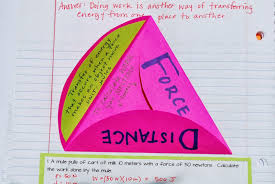 Answer: Doing work is another way of transferring
energy from one place to another
Transfer of energy
that occurs when a
force makes an
object move
FORCE
DISTANCE
1. A mule pulls of cart of milk 10 meters with a force of 50 newtons. Calculate
the work done by the mule.
F= 50 N
W=(50N)(10m) = 500 J